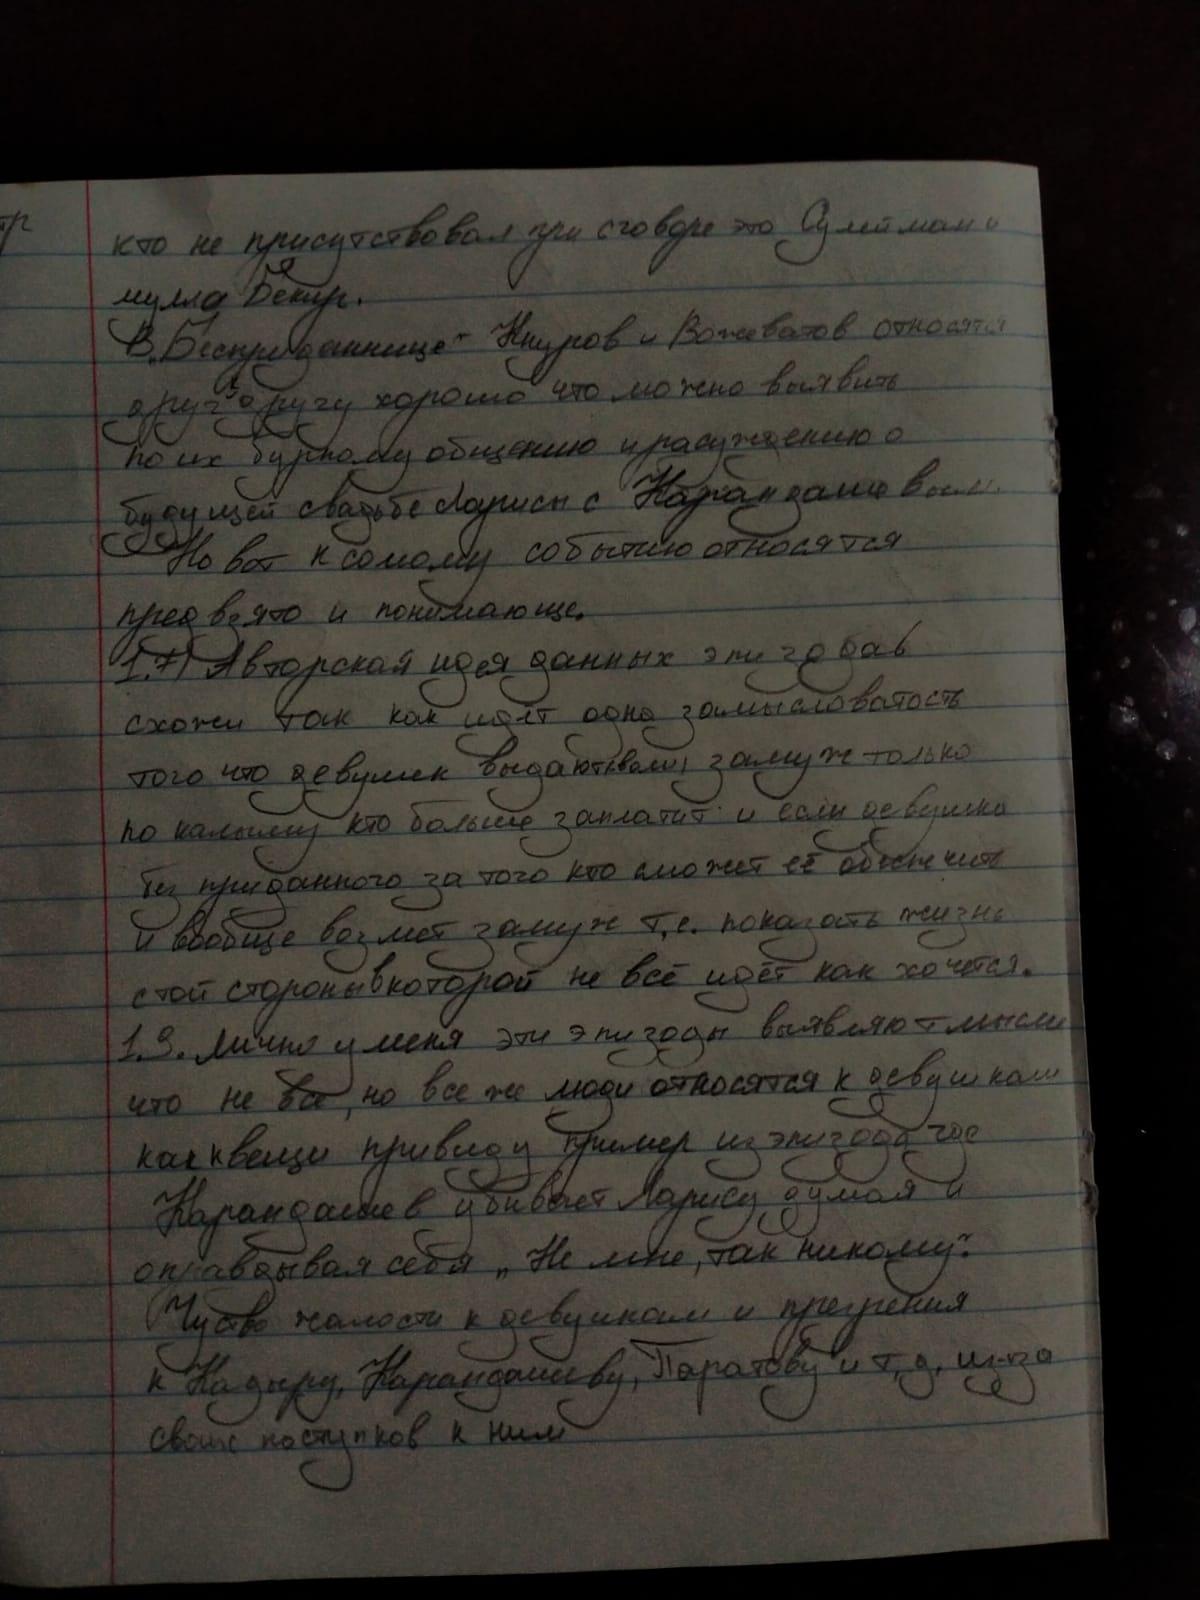 тр
кто не присутствовал при сговоре это Сулейман и
мулла Бекир.
В „Бесприданнице" Кнуров и Вожеватов относятся
друг другу хорошо что можно выявить
по их бурному общению и расуждению о
будущей свадьбе Ларисы с Карандашевым.
Но вот к самому событию относятся
предвзято и понимающе.
1.7) Авторская идея данных эпизодав
схожи так как идёт одна замысловатость
того что девушек выдают замуж только
по калыму кто больше заплатит и если девушка
без приданного за того кто сможет её обеспечить
и вообще возмёт замуж т.е. показать жизнь
с той стороны в которой не всё идёт как хочется.
1.9. Лично у меня эти эпизоды выявляют мысли
что не все, но все же люди относятся к девушкам
как к вещи привиду пример из эпизода где
Карандашев убивает Ларису думая и
оправдывая себя „Не мне, так никому".
Чуство жалости к девушкам и презрения
к Кадыру, Карандашеву, Паратову и т.д. из-за
своих поступков к ним